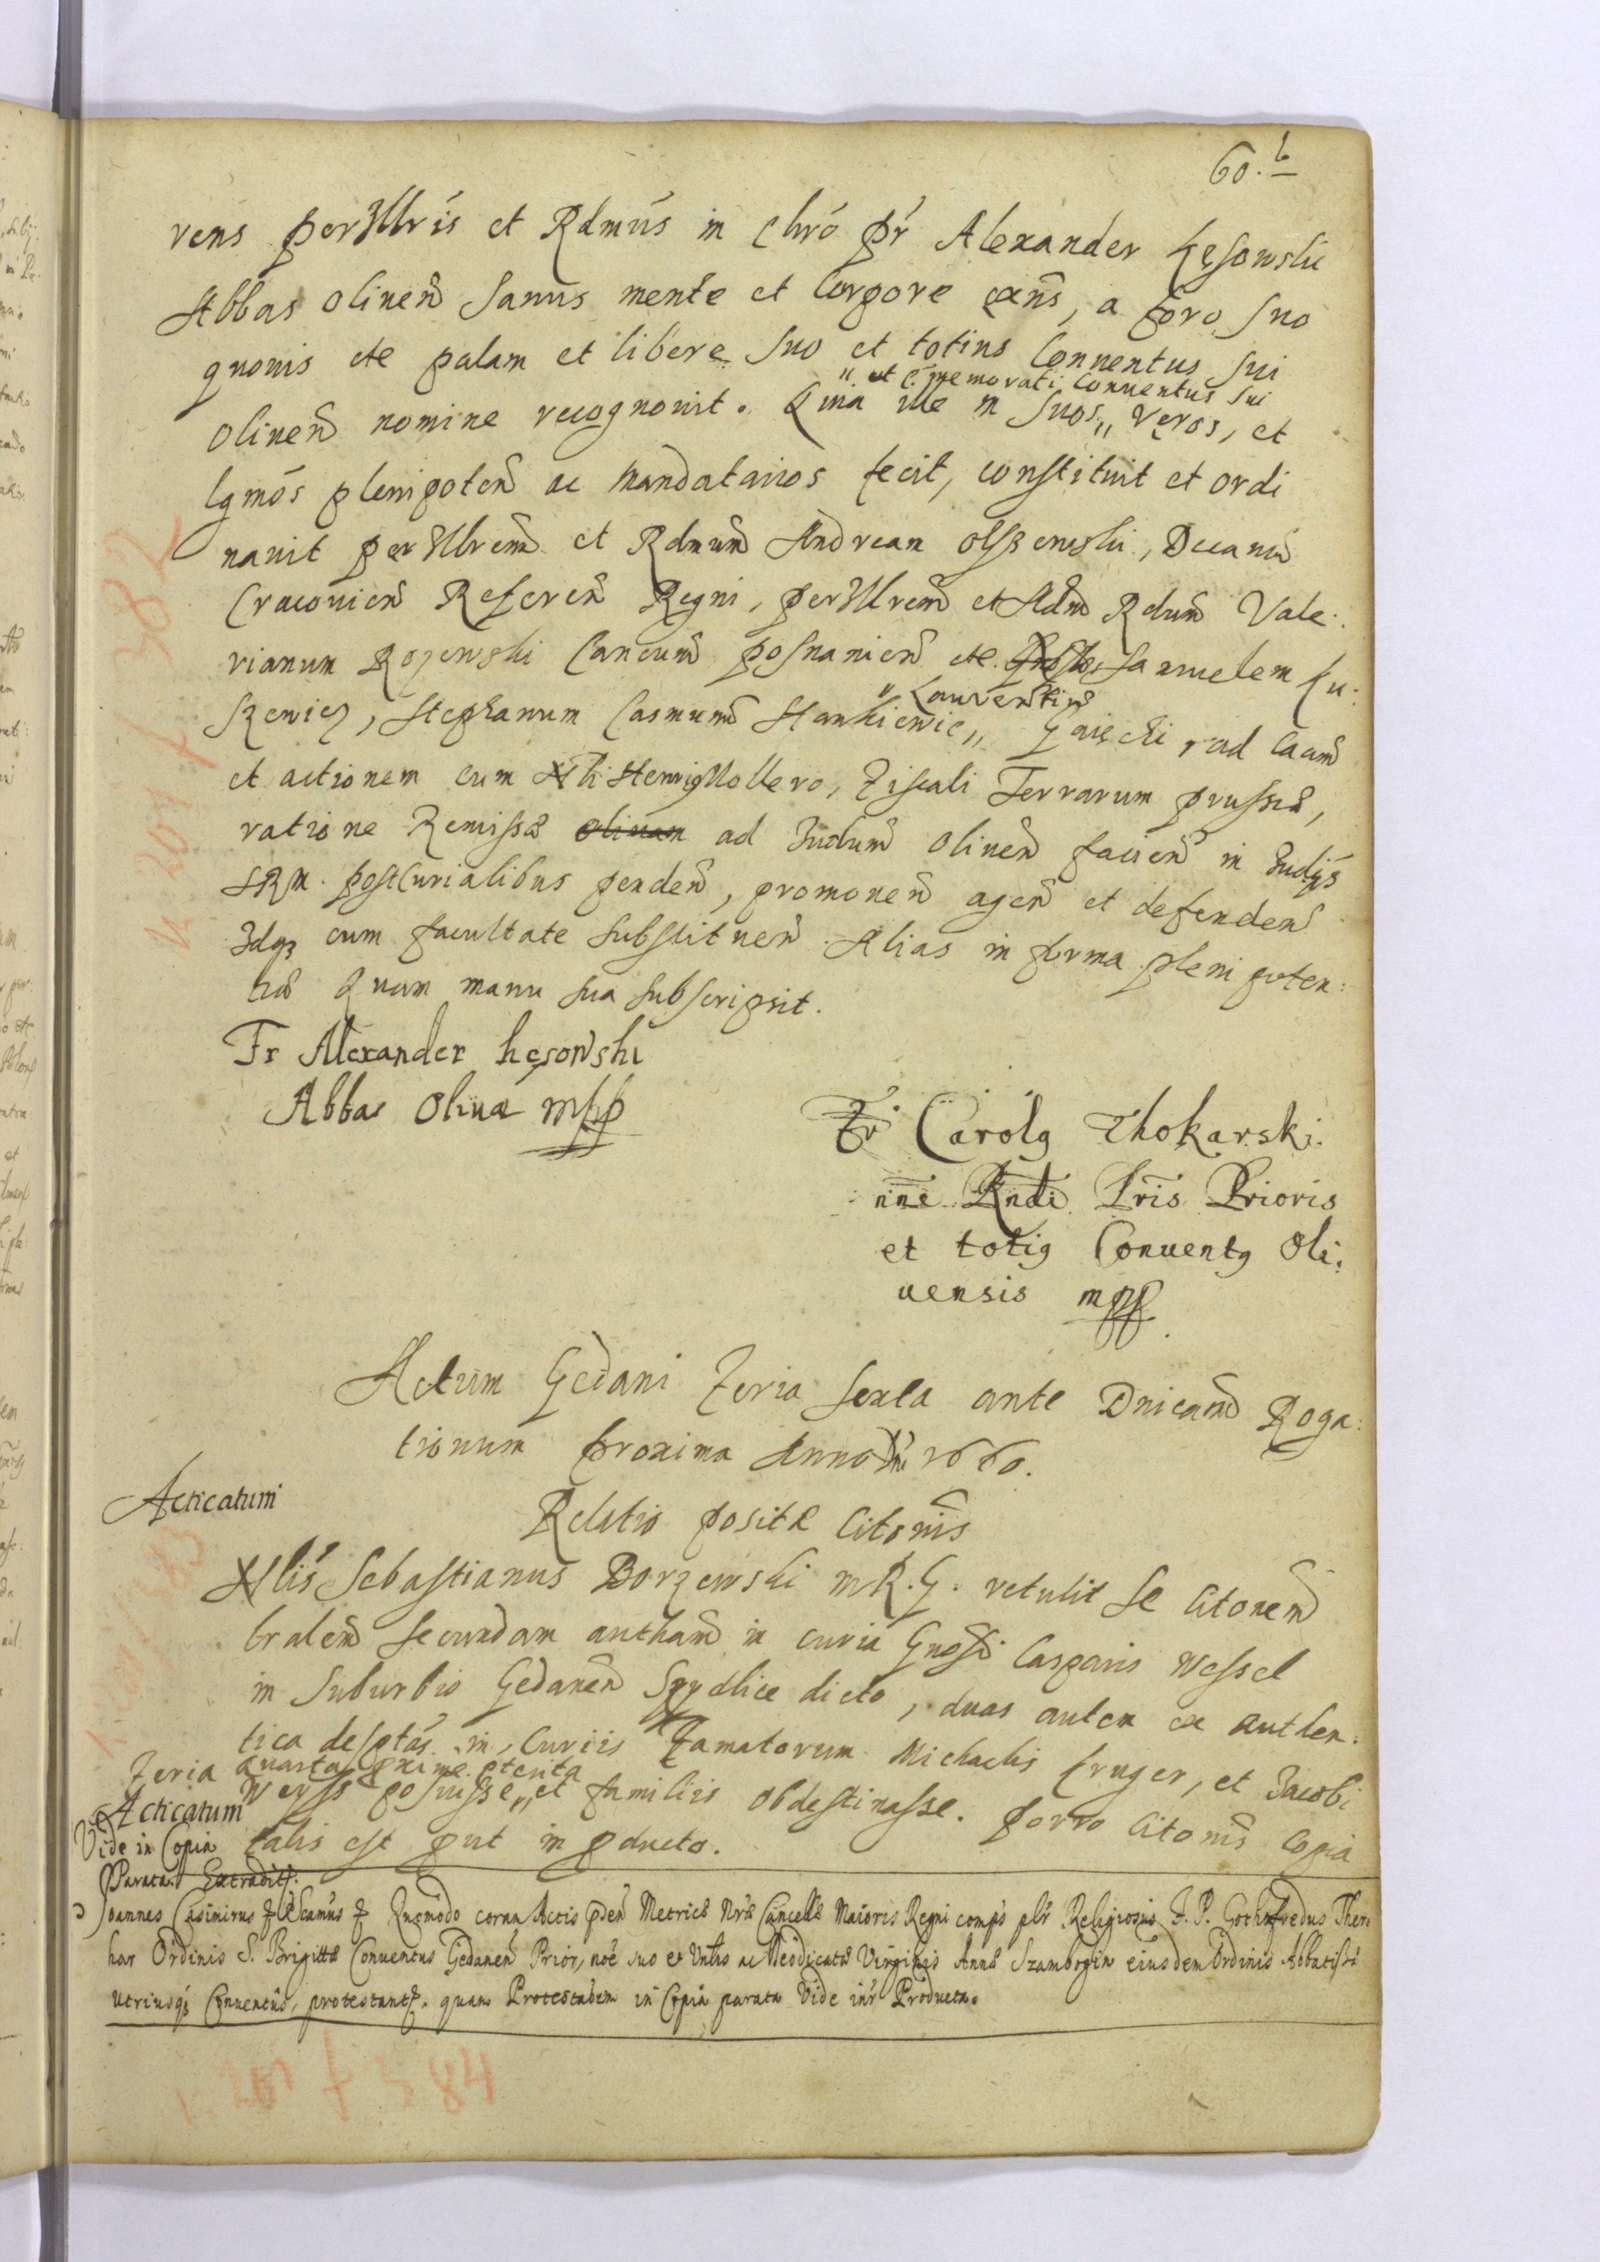 60. b
rens perIllris et Rdmus in Chro pr Alexander Kęsowski
Abbas Oliven Sanus mente et Corpore exns, a foro suo
quovis etc palam et libere suo et totius Conventus sui
" et C. memorati Conventus sui
Oliven nomine recognovit. Quia ille in suos " veros, et
lgmos plenipoten ac Mandatarios fecit, constituit et ordi
navit perIllrem et Rdmum Andream Olszewski, Decanum
Cracovien Referen Regni, perIllrem et Adm Rdum Vale:
rianum Rozewski Cancum Posnanien etc. Samuelem Ku:
" Laurentium
szewicz, Stephanum Casmunm Stankiewic " Gaięcki, ad Caam
et actionem cum Nli Henrig Mollero, Fiscali Terrarum Prussiæ,
ratione Remissæ Olivam ad Judum Oliven facien in Judijs
SRM. PostCurialibus penden, promoven agen et defenden
Idq3 cum facultate substituen. Alias in forma plenipoten:
tiæ Quam manu sua subscripsit.
Fr Alexander Kęsowski
Abbas Olivæ mpp
Fr Carolg Thokarski.
nne Rndi Pris Prioris
et totig Conventg Oli:
uensis mpp
Actum Gedani Feria Sexta ante Dnicam Roga:
tionum proxima Anno Dni 1660.
Acticatum
Relatio positæ Citonis
Nlis Sebastianus Borzewski m R. G. retulit se Citonem
bralem secundam autham in curia Gnosi Casparis Wessel
in Suburbio Gedanen Szydlice dicto, duas autem ex authen:
tica desptas in Curiis Famatorum Michaelis Kruger, et Jacobi
Feria quarta proxime pterita
Weyss posuisse " et familiis obdestinasse. Porro Citonis Copia
Acticatum
talis est put in pducto.
Vide in Copia
Parata. Extradit.
Joannes Casimirus Quomodo coram Actis pden Metricæ Nræ Cancellæ Maioris Regni comps plr Religiosus F. P. Gothofredus Ther
har Ordinis S. Brigittæ Conventus Gedanen Prior, noe suo et Vnlis ac Deodicatæ Virginis Annæ Szambogin eiusdem Ordinis Abbatissæ
utriusq3 Conventus, protestant. quam Protestaonem in Copia parata Vide inr Producta.